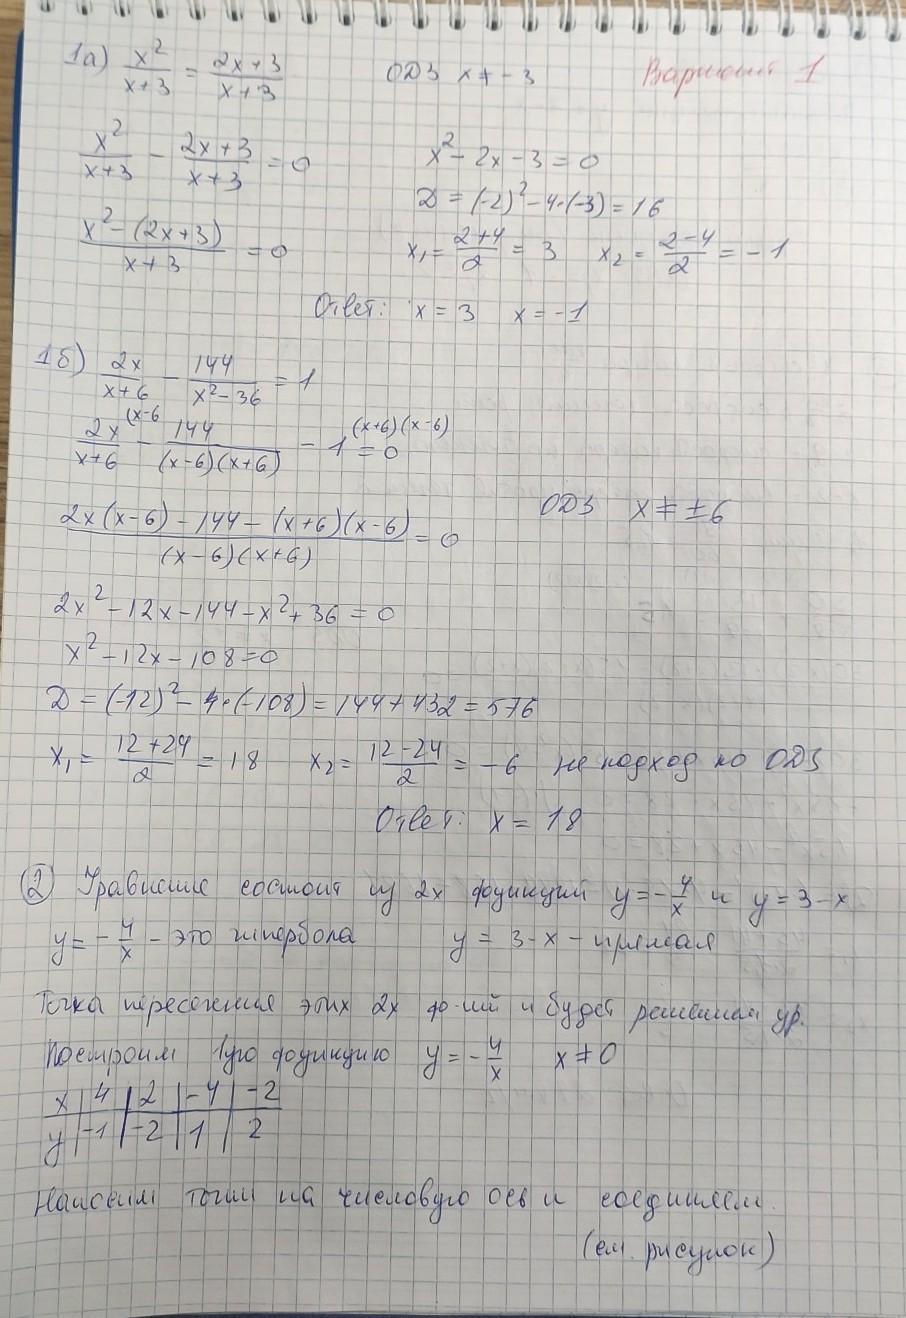 1а) x²/(x+3) = (2x+3)/(x+3) ОДЗ x ≠ -3 Вариант 1
x²/(x+3) - (2x+3)/(x+3) = 0 x² - 2x - 3 = 0
D = (-2)² - 4·(-3) = 16
(x² - (2x+3))/(x+3) = 0 x₁ = (2+4)/2 = 3 x₂ = (2-4)/2 = -1
Ответ: x = 3 x = -1
1б) 2x/(x+6) - 144/(x²-36) = 1
2x/(x+6) ^(x-6 - 144/((x-6)(x+6)) - 1 ^(x+6)(x-6) = 0
ОДЗ x ≠ ±6
(2x(x-6) - 144 - (x+6)(x-6))/((x-6)(x+6)) = 0
2x² - 12x - 144 - x² + 36 = 0
x² - 12x - 108 = 0
D = (-12)² - 4·(-108) = 144 + 432 = 576
x₁ = (12+24)/2 = 18 x₂ = (12-24)/2 = -6 не подход по ОДЗ
Ответ: x = 18
② Уравнение состоит из 2х функций y = -4/x и y = 3-x
y = -4/x - это гипербола y = 3-x - прямая
Точка пересечения этих 2х ф-ций и будет решением ур.
Построим 1ую функцию y = -4/x x ≠ 0
x | 4 | 2 | -4 | -2
y | -1 | -2 | 1 | 2
Наносим точки на числовую ось и соединяем.
(см. рисунок)